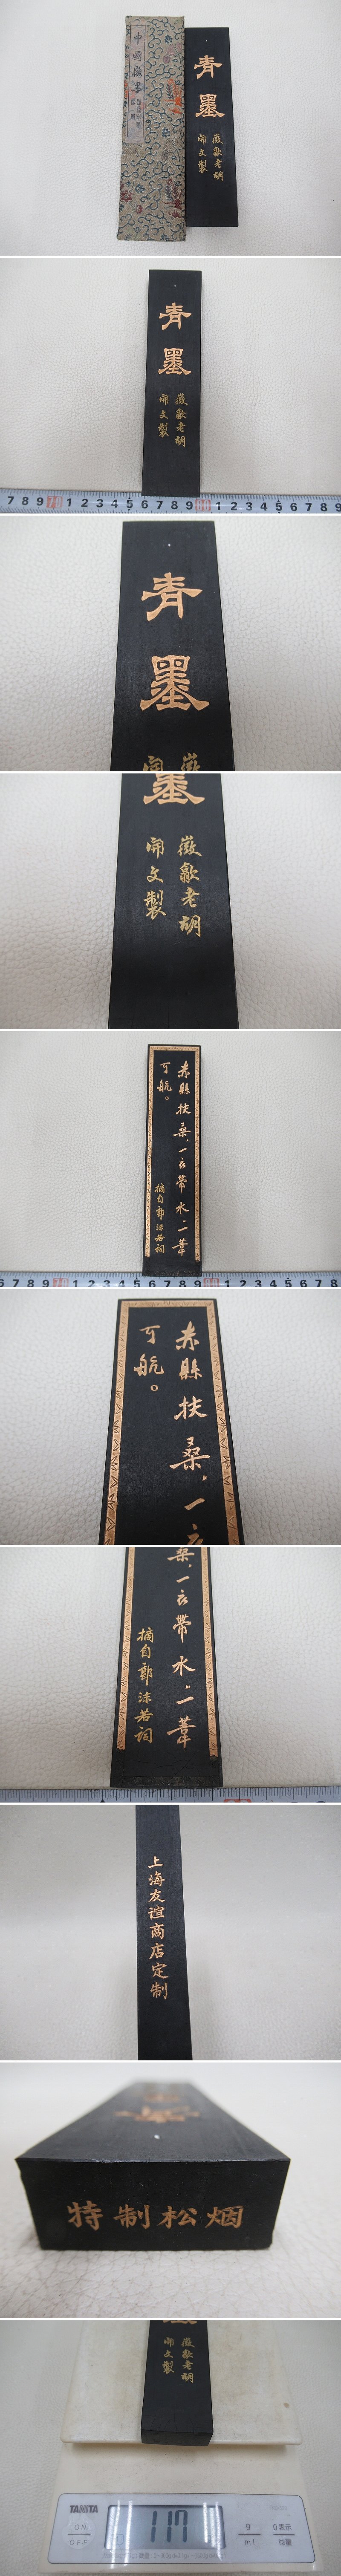 中國徽墨
青墨
徽歙老胡
開文製
青墨
徽歙老胡
開文製
7 8 9 1 2 3 4 5 6 7 8 9 1 2 3 4 5 6 7 8 9
青
墨
徽
開
墨
徽歙老胡
開文製
赤縣扶桑，一衣帶水，一葦
可航。
摘自郭沫若詞
6 7 8 9 1 2 3 4 5 6 7 8 9 1 2 3 4 5 6 7 8
赤縣扶桑，一衣
可航。
桑，一衣帶水，一葦
摘自郭沫若詞
上海友谊商店定制
特制松烟
徽歙老胡
開文製
TANITA
ON
OFF
117
g
ml
0表示